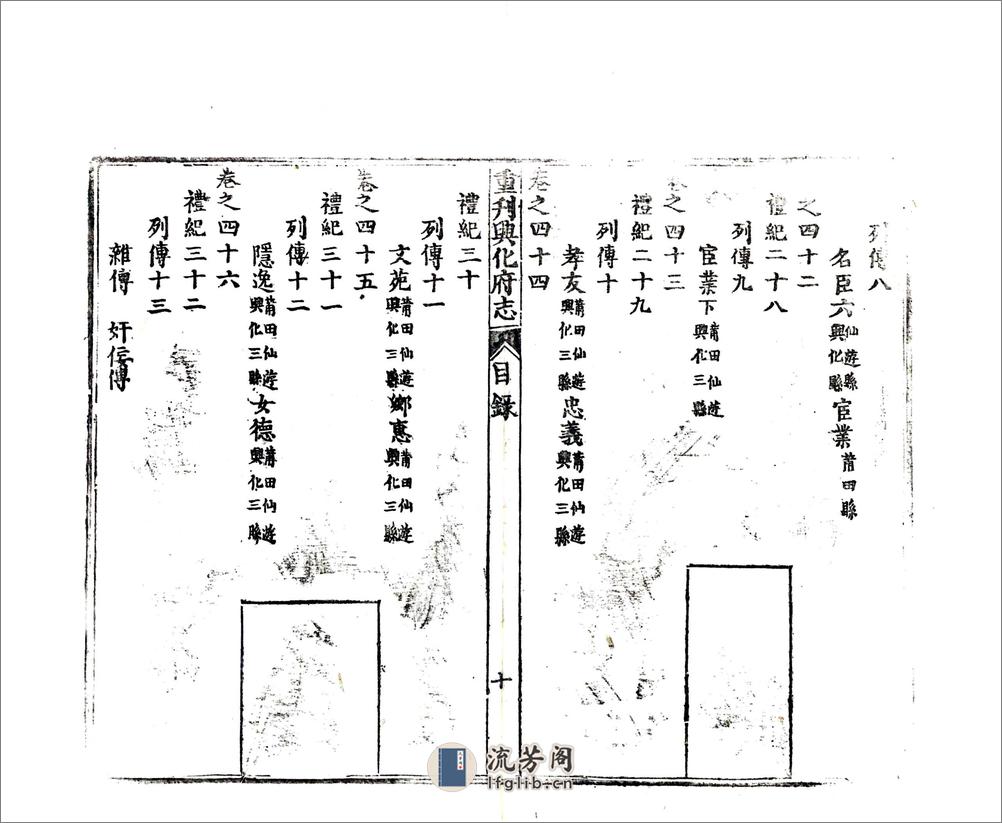 列傳八
名臣六仙遊縣興化縣 宦業莆田縣
卷之四十二
禮紀二十八
列傳九
宦業下莆田仙遊興化三縣
卷之四十三
禮紀二十九
列傳十
孝友莆田仙遊興化三縣 忠義莆田仙遊興化三縣
卷之四十四
重刋興化府志 目録 十
禮紀三十
列傳十一
文苑莆田仙遊興化三縣 鄉惠莆田仙遊興化三縣
卷之四十五
禮紀三十一
列傳十二
隱逸莆田仙遊興化三縣 女德莆田仙遊興化三縣
卷之四十六
禮紀三十二
列傳十三
雜傳 奸佞傳
流芳阁
lfglib.cn